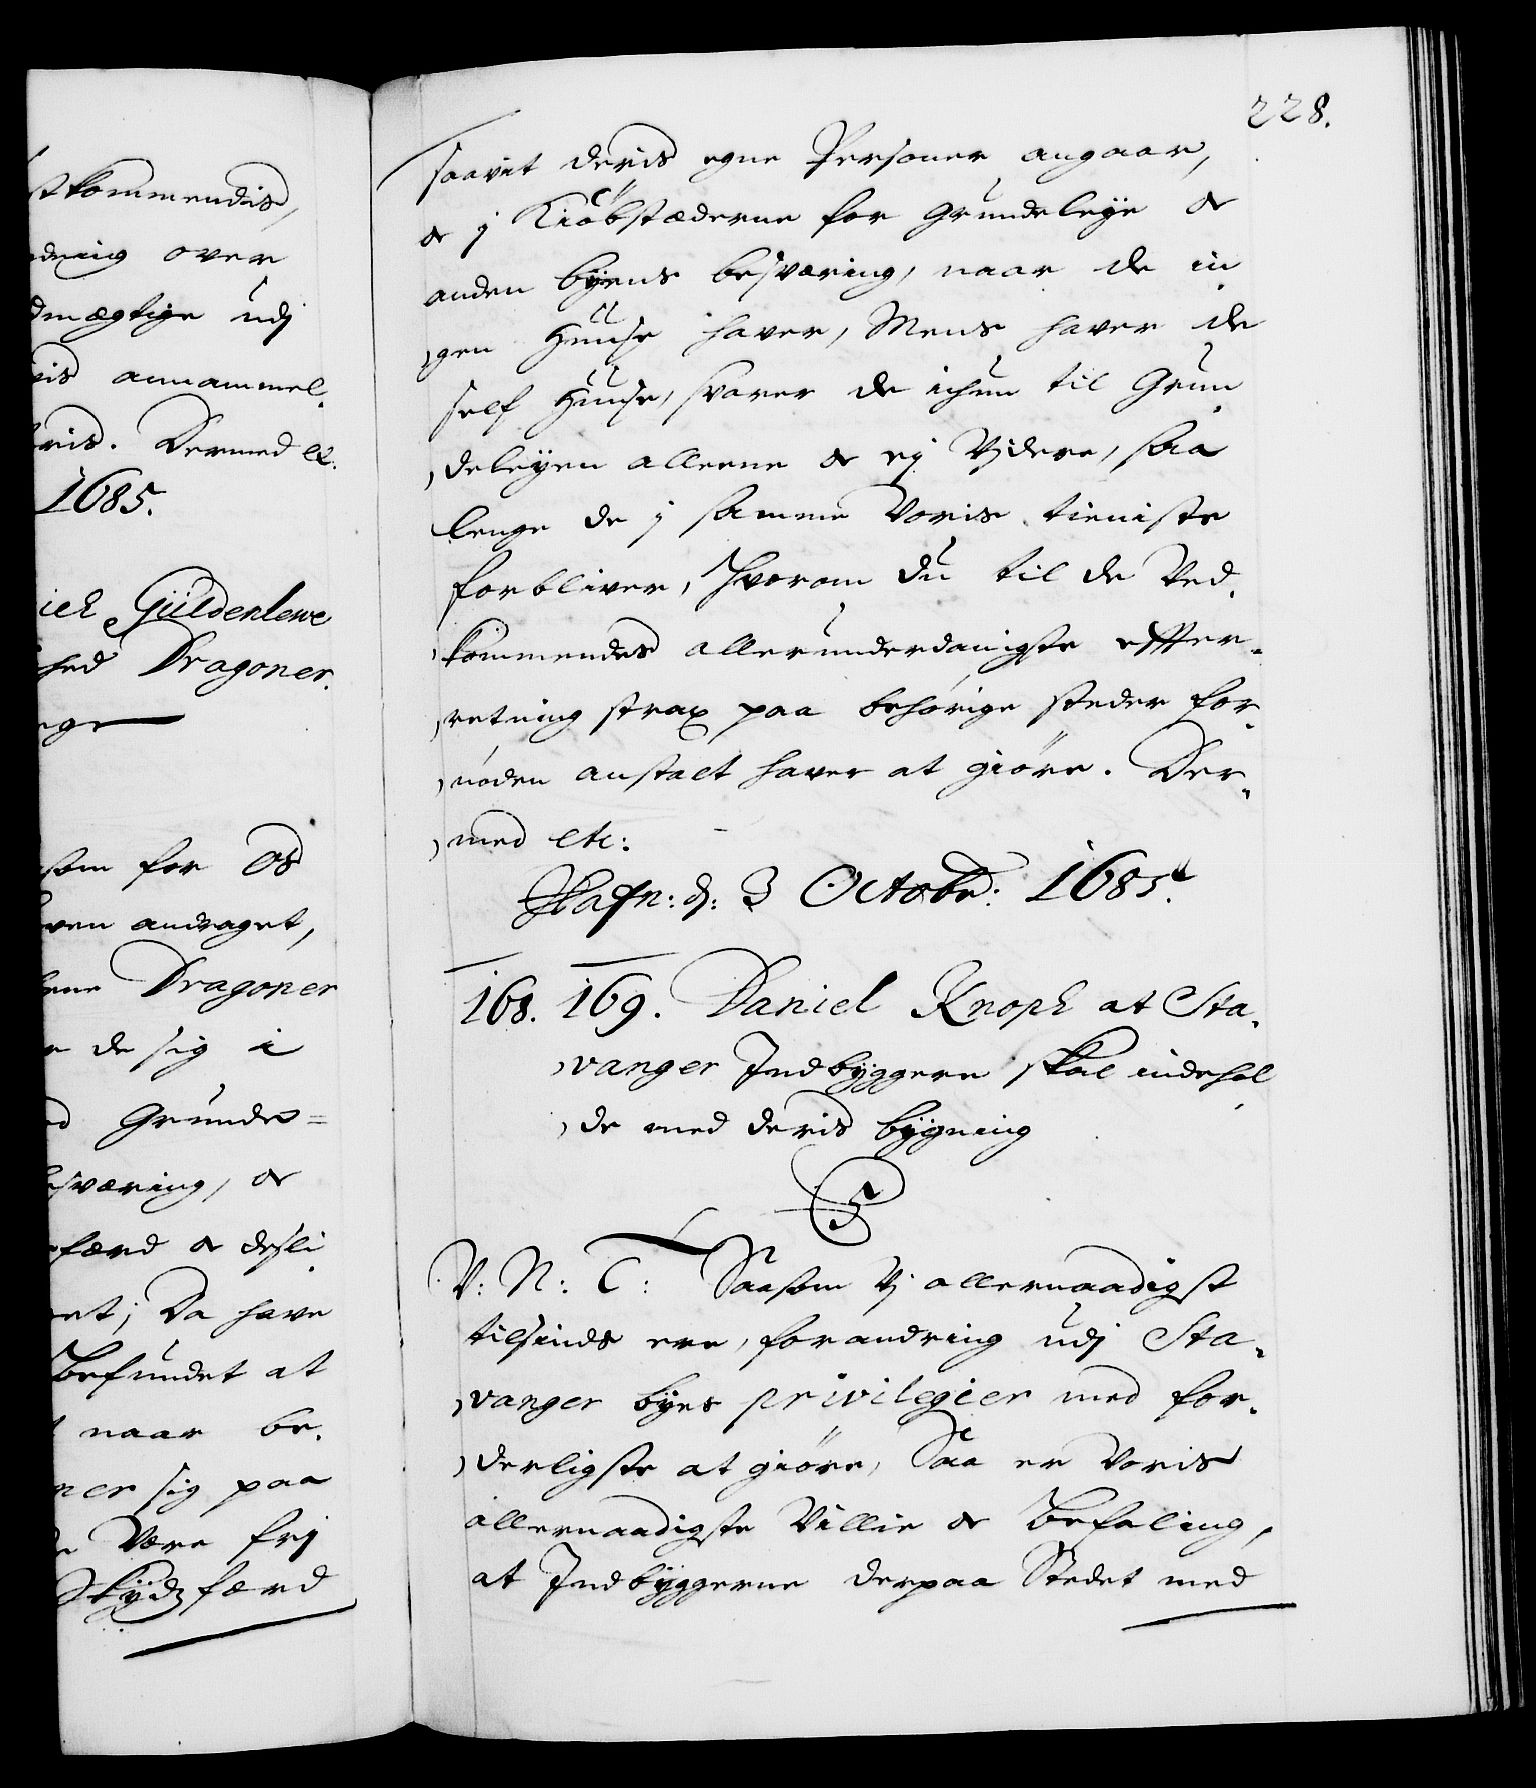 stkommendis,
dning over
dmægtige udj
vis annammel
Dermed etc.
1685.
Güldenlewe
hed Dragoner.
som for OS
ven andraget,
Dragoner
de sig i
Grunde=
esværing, &
færd & desli
et; Da have
Befundet at
naar be.
ner sig paa
Være frj
Skydzfærd
228.
saavit deris egne Personer angaar,
& j Kiöbstæderne for grundeleye &
anden byens besværing, naar de in
gen Huuse haver, Mens haver de
self Huuse, svarer de ichun til Grun
deleyen alleene & ej Videre, saa
lenge de j samme Voris tieniste
forbliver, Hvorom du til de Ved.
kommendes allerunderdanigste effter-
retning strax paa behörige steder for-
nöden anstalt haver at giöre. Der-
med etc:
Hafn: d: 3 Octobr: 1685.
168. 169. Daniel Knoph at Sta-
vanger Indbyggere skal indehol
de med deris bygning
C5
V: N: T: Saasom Vj allernaadigst
tilsinds ere, forandring udj Sta-
vanger byes privilegier med for-
derligste at giöre, Saa er Voris
allernaadigste Villie & Befaling,
at Indbyggerne derpaa Stedet med